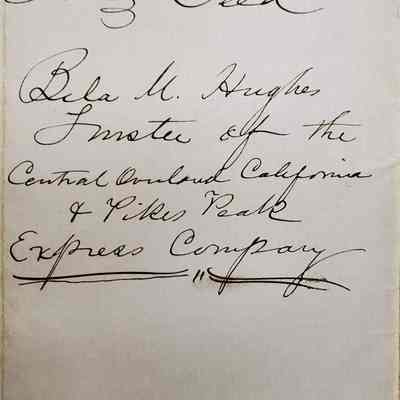 Deed
Bela M. Hughes
Trustee of the
Central Overland California
& Pikes Peak
Express Company